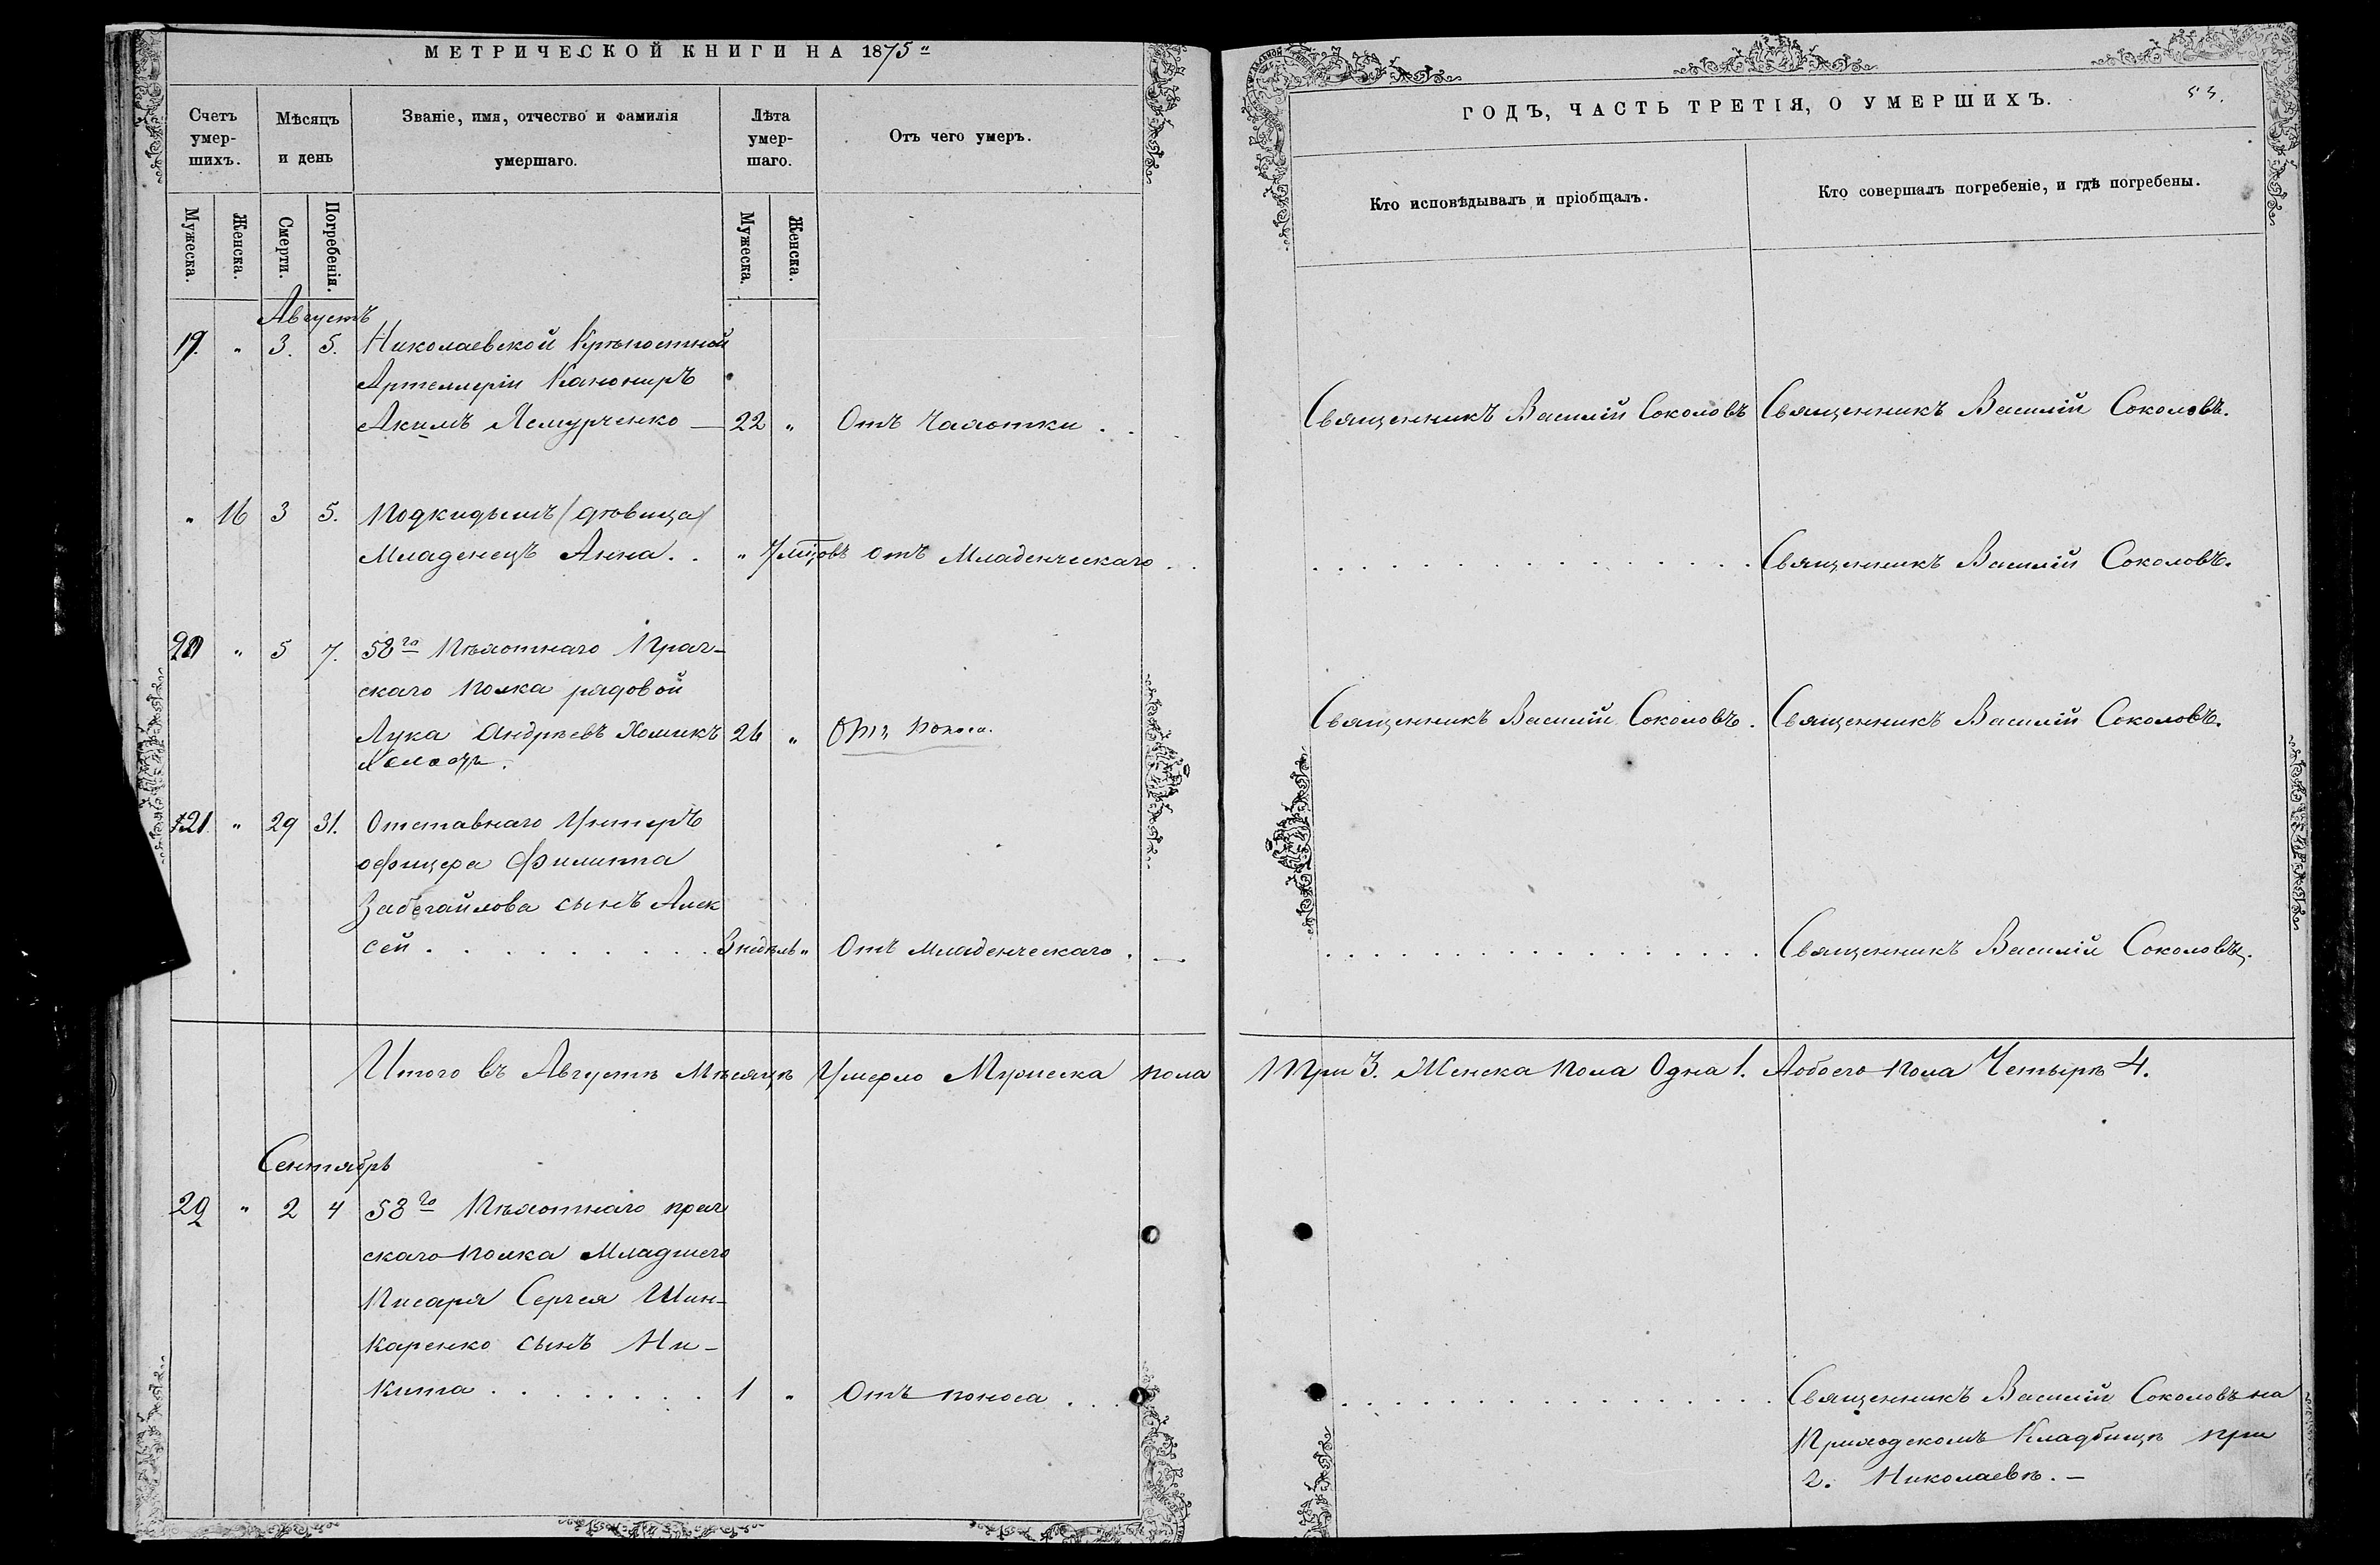 МЕТРИЧЕСКОЙ КНИГИ НА 1875"
Счетъ умер-шихъ.
Мѣсяцъ и день
Званіе, имя, отчество и фамилія умершаго.
Лѣта умер-шаго.
Отъ чего умеръ.
Мужеска.
Женска.
Смерти.
Погребенія.
Мужеска.
Женска.
Августъ
19. " 3. 5. Николаевской Крѣпостной
Артеллеріи Канониръ
Акимъ — 22 " Отъ Чахотки . .
" 16 3 5. Подкидышъ (дѣвица)
Младенецъ Анна . . " 7 мѣцовъ отъ Младенческаго . .
20 " 5 7. 58го Пѣхотнаго Праг-
скаго полка рядовой
Лука Андреевъ Хомикъ 26 " Отъ поноса.
Холостъ.
21. " 29 31. Отставнаго Унтеръ
офицера Филиппа
Забегайлова сынъ Алек
сей . . . . . . . . . 3 недѣль " Отъ младенческаго . —
Итого въ Августѣ Мѣсяцѣ Умерло Мужеска пола
Сентябрь
22 " 2 4 58го Пѣхотнаго праг
скаго полка Младшего
Писаря Сергея Шин-
каренко сынъ Ни-
кита . . . . . . . . 1 " Отъ поноса . . .
ГОДЪ, ЧАСТЬ ТРЕТІЯ, О УМЕРШИХЪ.
53.
Кто исповѣдывалъ и пріобщалъ.
Кто совершалъ погребеніе, и гдѣ погребены.
Священникъ Василій Соколовъ Священникъ Василій Соколовъ.
. . . . . . . . . . . . . . . . . Священникъ Василій Соколовъ.
Священникъ Василій Соколовъ. Священникъ Василій Соколовъ.
. . . . . . . . . . . . . . . . . Священникъ Василій Соколовъ.
Три 3. Женска пола Одна 1. Аобоего пола Четырѣ 4.
. . . . . . . . . . . . . . . . . Священникъ Василій Соколовъ на
Приходскомъ Кладбищѣ при
г. Николаевѣ. —